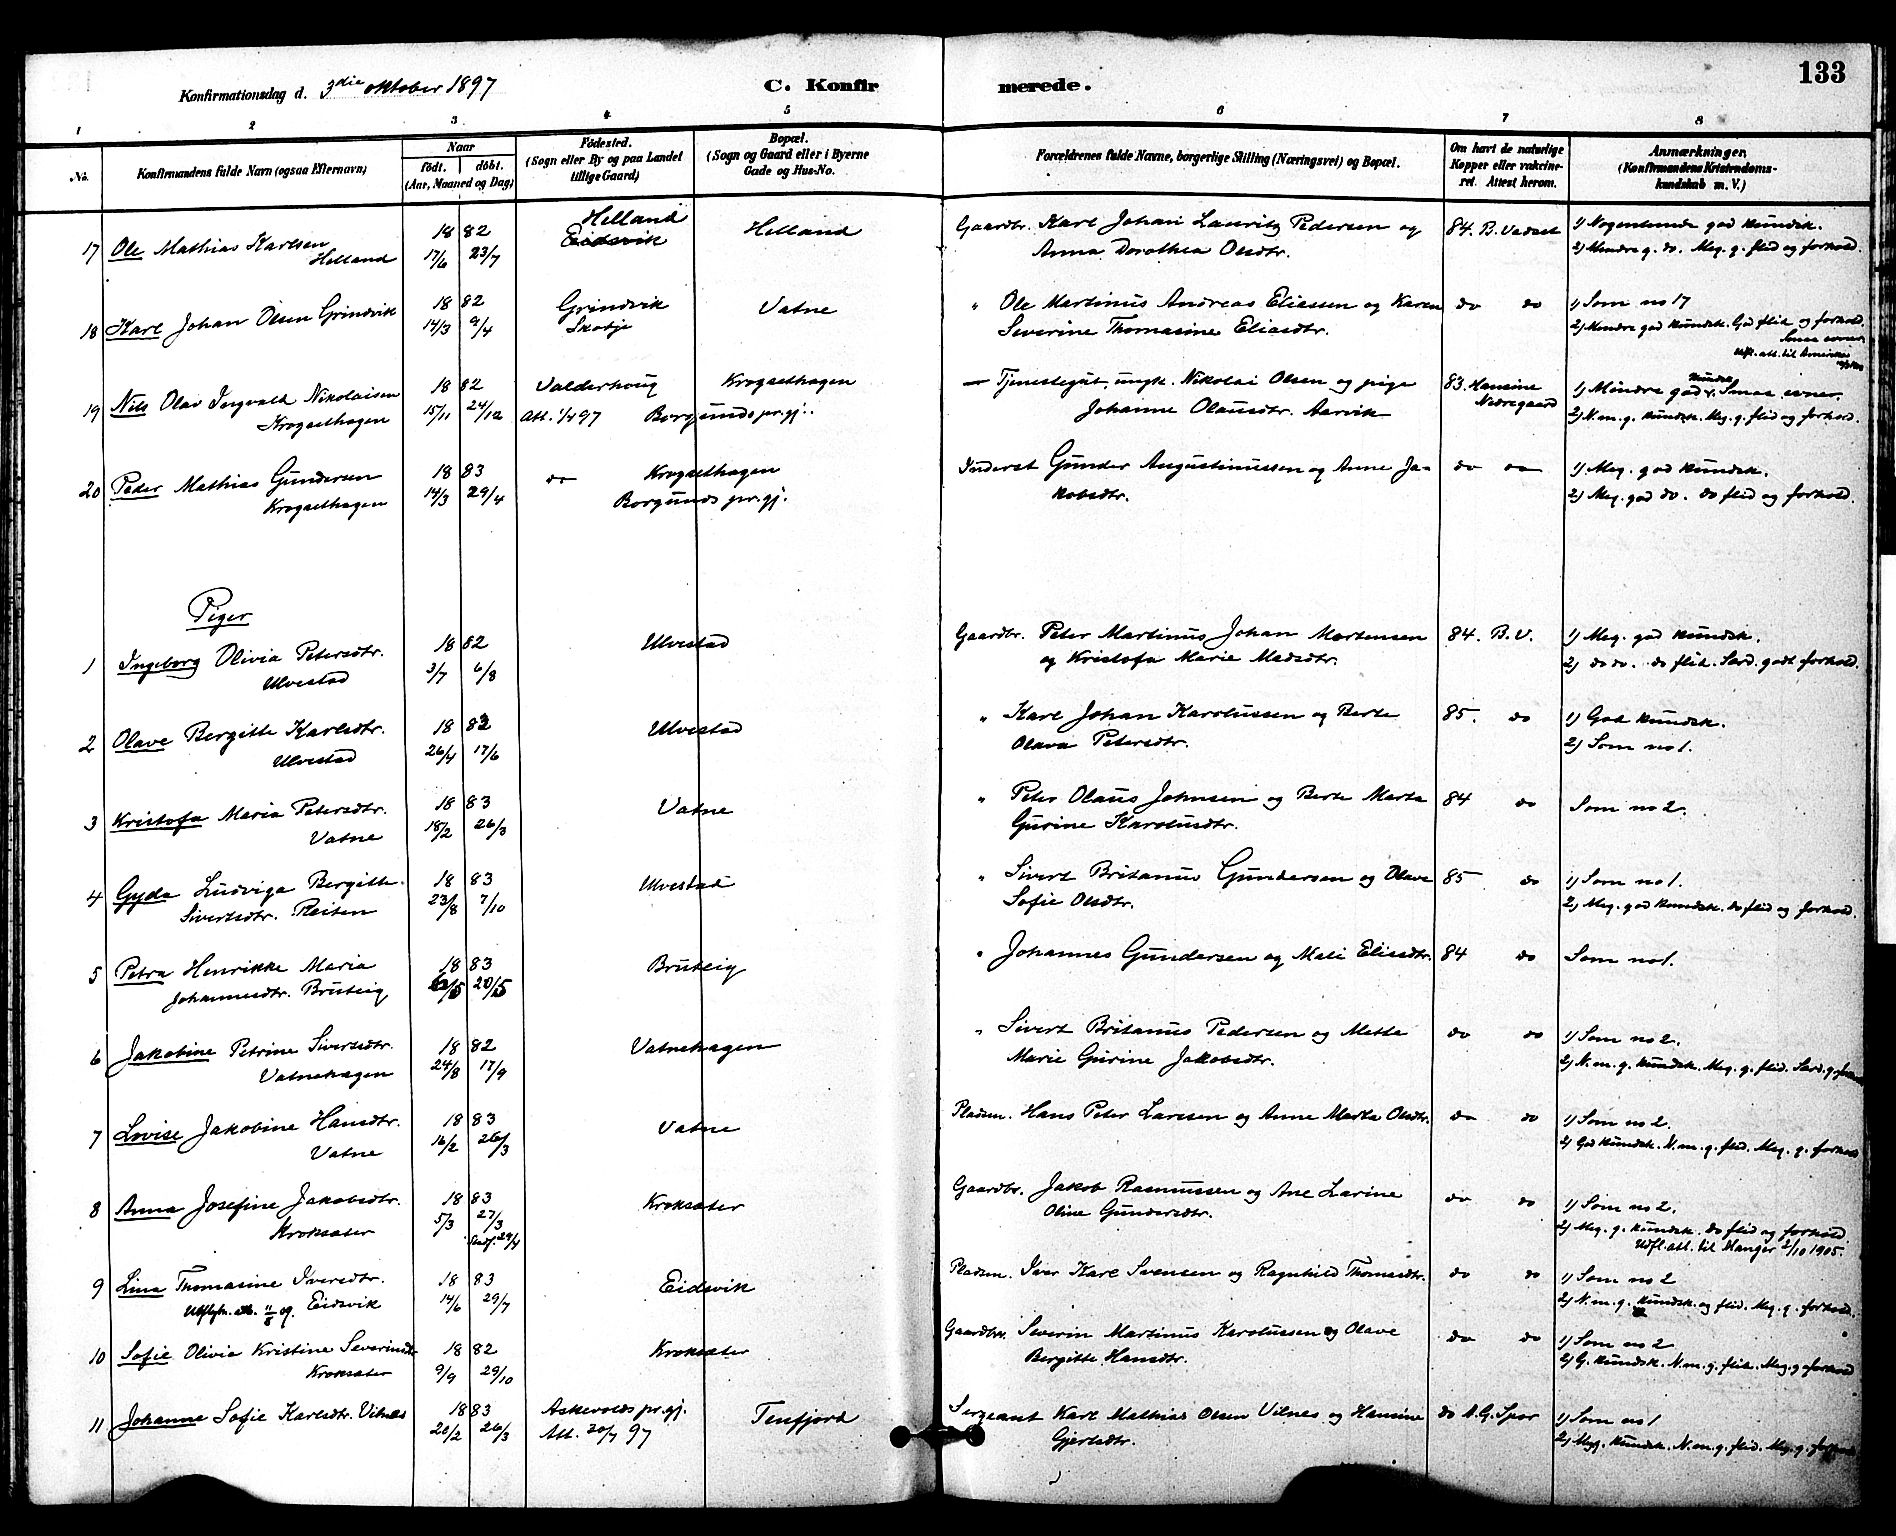 133
Konfirmationsdag d. 3die oktober 1897
C. Konfirmerede.
1 2 3 4 5 6 7 8
No.
Konfirmandens fulde Navn (ogsaa Efternavn)
Naar
født. døbt.
(Aar, Maaned og Dag)
Fødested.
(Sogn eller By og paa Landet
tillige Gaard)
Bopæl.
(Sogn og Gaard eller i Byerne
Gade og Hus-No.
Forældrenes fulde Navne, borgerlige Stilling (Næringsvei) og Bopæl.
Om havt de naturlige
Kopper eller vakcine-
ret. Attest herom.
Anmærkninger.
(Konfirmandens Kristendoms-
kundskab m. V.)
17 Ole Mathias Karlsen
Helland
18 82
17/6 23/7
Helland
Eidsvik
Helland
Gaardbr. Karl Johan Lauritz Pedersen og
Anna Dorothea Olsdtr.
84. B. Vadset
1) Nogenlunde god kundsk.
2) Mindre g. do. Meg. g. flid og forhold.
18 Karl Johan Olsen Grindvik
18 82
14/3 9/4
Grindvik
Skodje
Vatne
" Ole Martinus Andreas Eliassen og Karen
Severine Thomasine Eliasdtr.
do do
1) Som no 17
2) Mindre god kundsk. God flid og forhold.
Smaa evner.
Udfl. att. til Amerika
19 Nils Olav Ingvald Nikolaisen
Krogsethagen
18 82
15/11 24/12
Valderhoug
Att. 1/4 97
Krogsethagen
Borgunds pr.gj.
— Tjenestegut, ungk. Nikolai Olsen og pige
Johanne Olausdtr. Aarvik
83. Hansine
Nedregaard
1) Mindre god kundsk. Smaa evner.
2) N.m.g. kundsk. Meg. g. flid og forhold.
20 Peder Mathias Gundersen
Krogsethagen
18 83
14/3 29/4
do
Krogsethagen
Borgunds pr.gj.
Inderst Gunder Augustinussen og Anne Ja-
kobsdtr.
do do
1) Meg. god kundsk.
2) Meg. god do. do flid og forhold.
Piger
1 Ingeborg Olivia Petersdtr.
Ulvestad
18 82
3/7 6/8
Ulvestad
Gaardbr. Peter Martinus Johan Mortensen
og Kristofa Marie Madsdtr.
84. B. V.
1) Meg. god kundsk.
2) do do. do flid. Særd. godt forhold.
2 Olave Bergitte Karlsdtr.
Ulvestad
18 83
26/4 17/6
Ulvestad
" Karl Johan Karolussen og Berte
Olava Petersdtr.
85. do
1) God kundsk.
2) Som no 1.
3 Kristofa Maria Petersdtr.
Vatne
18 83
18/2 26/3
Vatne
" Peter Olaus Johnsen og Berte Marta
Gurine Karolusdtr.
84 do
Som no 2.
4 Gyda Ludviga Bergitte
Sivertsdtr. Reiten
18 83
23/8 7/10
Ulvestad
" Sivert Britanus Gundersen og Olave
Sofie Olsdtr.
85 do
1) Som no 1.
2) Meg. god kundsk. do flid og forhold.
5 Petra Henrikke Maria
Johannesdtr. Bruteig
18 83
20/5
Bruteig
" Johannes Gundersen og Mali Eliasdtr.
84 do
Som no 1.
6 Jakobine Petrine Sivertsdtr.
Vatnehagen
18 82
24/8 17/9
Vatnehagen
" Sivert Britanus Pedersen og Mette
Marie Gurine Jakobsdtr.
do do
1) Som no 2.
2) N.m.g. kundsk. Meg. g. flid. Særd. g. forhold
7 Lovise Jakobine Hansdtr.
Vatne
18 83
16/2 26/3
Vatne
Pladsm. Hans Peter Larssen og Anne Marta Olsdtr.
do do
1) Som no 2.
2) God kundsk. N.m.g. flid. Meg. g. forhold
8 Anna Josefine Jakobsdtr.
Kroksæter
18 83
5/3 27/3
Stadf. 29/4
Kroksæter
Gaardbr. Jakob Rasmussen og Ane Larine
Oline Gundersdtr.
do do
1) Som no 2.
2) Meg. g. kundsk. do flid og forhold
Udfl. att. til Hanger 2/10 1905.
9 Lina Thomasine Iversdtr.
Eidsvik
18 83
14/6 29/7
Eidsvik
Pladsm. Iver Karl Svensen og Ragnhild Thomasdtr.
do do
1) Som no 2
2) N.m.g. kundsk. og flid. Meg. g. forhold.
10 Sofie Olivia Kristine Severinsdtr
Kroksæter
18 82
9/9 29/10
Kroksæter
Gaardbr. Severin Martinus Karolussen og Olave
Bergitte Hansdtr.
do do
1) Som no 2
2) G. kundsk. N.m.g. flid. Meg. g. forhold
11 Johanna Sofie Karlsdtr. Vilnes
18 83
20/2 26/3
Askevolds pr.gj.
Att. 30/7 97
Tenfjord
Sergeant Karl Mathias Olsen Vilnes og Hansine
Gjertsdtr.
do A. G. Spor
1) Som no 1
2) Meg. kundsk. N.m.g. flid. Meg. g. forhold